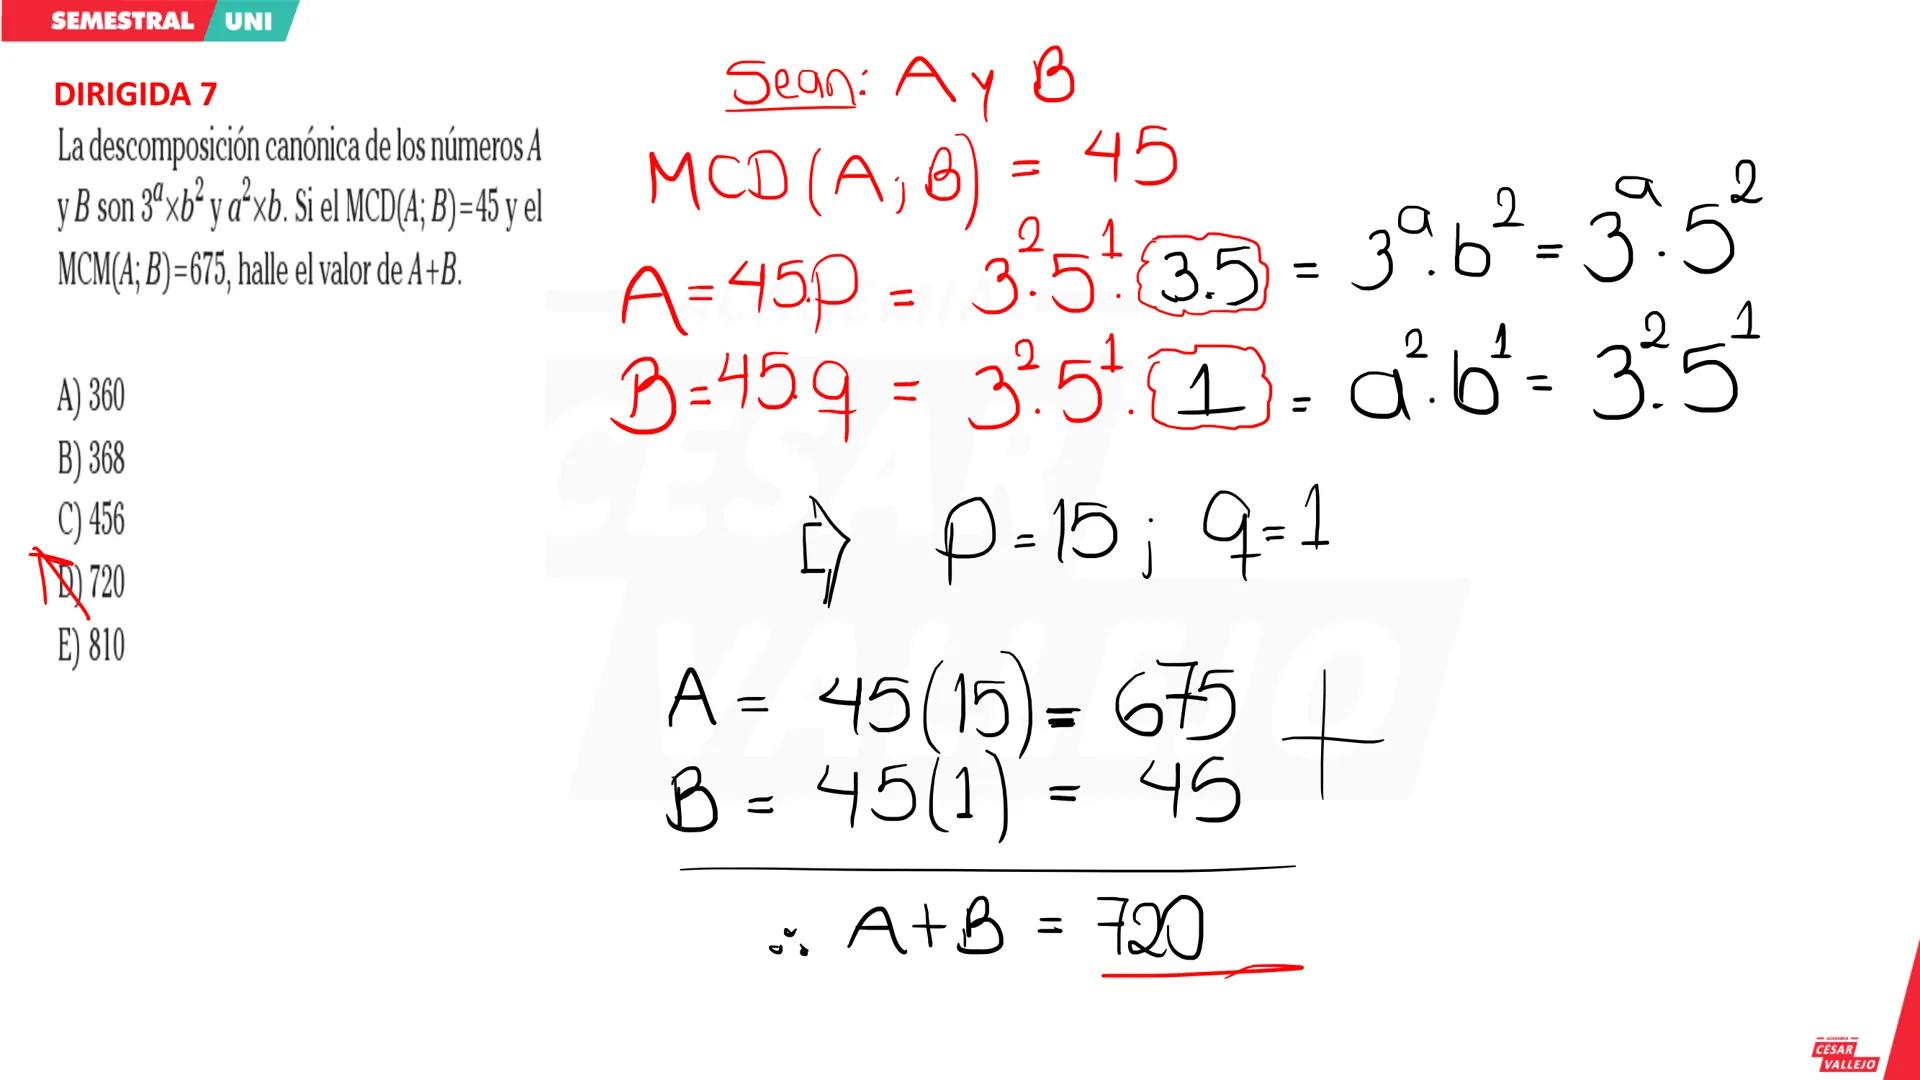 SEMESTRAL UNI
DIRIGIDA 7
La descomposición canónica de los números A
y B son 3^a×b^2 y a^2×b. Si el MCD(A; B)=45 y el
MCM(A; B)=675, halle el valor de A+B.
A) 360
B) 368
C) 456
D) 720
E) 810
Sean: A y B
MCD(A;B) = 45
A=45.p = 3^2.5^1.3.5 = 3^a.b^2 = 3^a.5^2
B=45.q = 3^2.5^1.1 = a^2.b^1 = 3^2.5^1
⇨ p=15; q=1
A = 45(15) = 675 +
B = 45(1) = 45
∴ A+B = 720
CESAR
VALLEJO
ACADEMIA
CÉSAR
VALLEJO